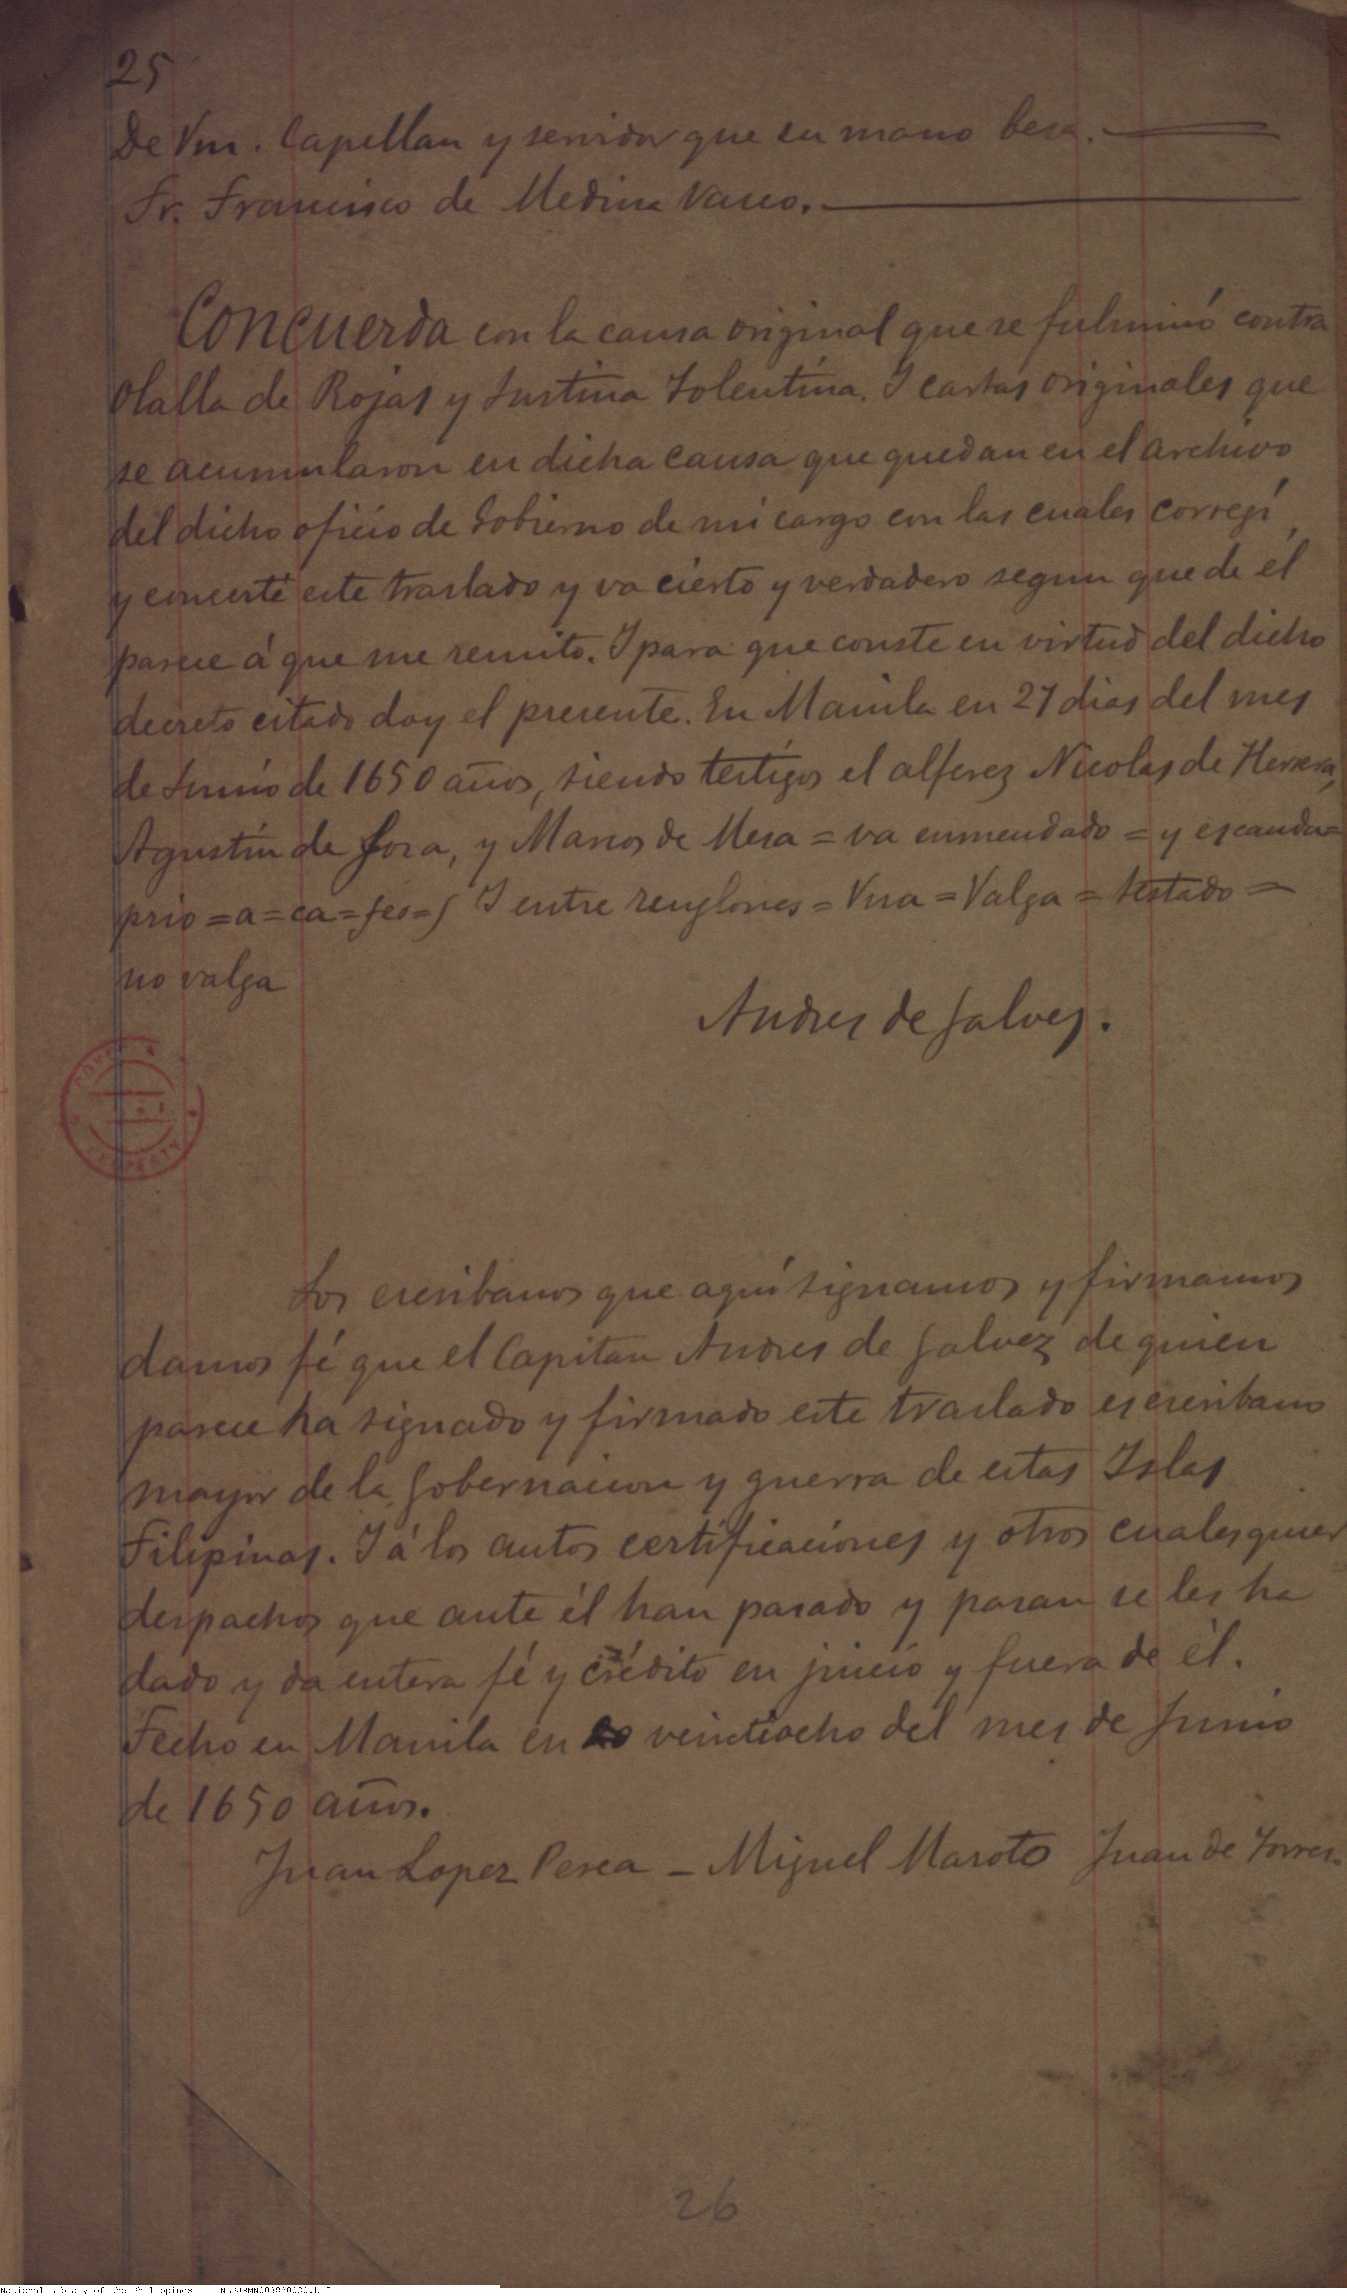 25
De Vm. Capellan y servidor que su mano besa.
Fr. Francisco de Medina Vasco.
Concuerda con la causa original que se fulminó contra
Olalla de Rojas y Justina Tolentina. I cartas originales que
se acumularon en dicha causa que quedan en el archivo
del dicho oficio de Gobierno de mi cargo con las cuales corregí
y concerté este traslado y va cierto y verdadero segun que de él
parece á que me remito. I para que conste en virtud del dicho
decreto citado doy el presente. En Manila en 27 dias del mes
de Junio de 1650 años, siendo testigos el alferez Nicolas de Herrera,
Agustín de Sora, y Marcos de Mesa = va enmendado = y escanda=
prio = a = ca = fes = s I entre renglones = Vna = Valga = testado =
no valga
Andres de Galvez.
Los escribanos que aquí signamos y firmamos
damos fé que el Capitan Andres de Galvez de quien
parece ha signado y firmado este traslado es escribano
mayor de la Gobernacion y guerra de estas Islas
Filipinas. I á los autos certificaciones y otros cualesquier
despachos que ante él han pasado y pasan se les ha
dado y da entera fé y crédito en juicio y fuera de él.
Fecho en Manila en veintiocho del mes de Junio
de 1650 años.
Juan Lopez Perea - Miguel Maroto Juan de Torres.
PROPERTY
26
National Library of the Philippines